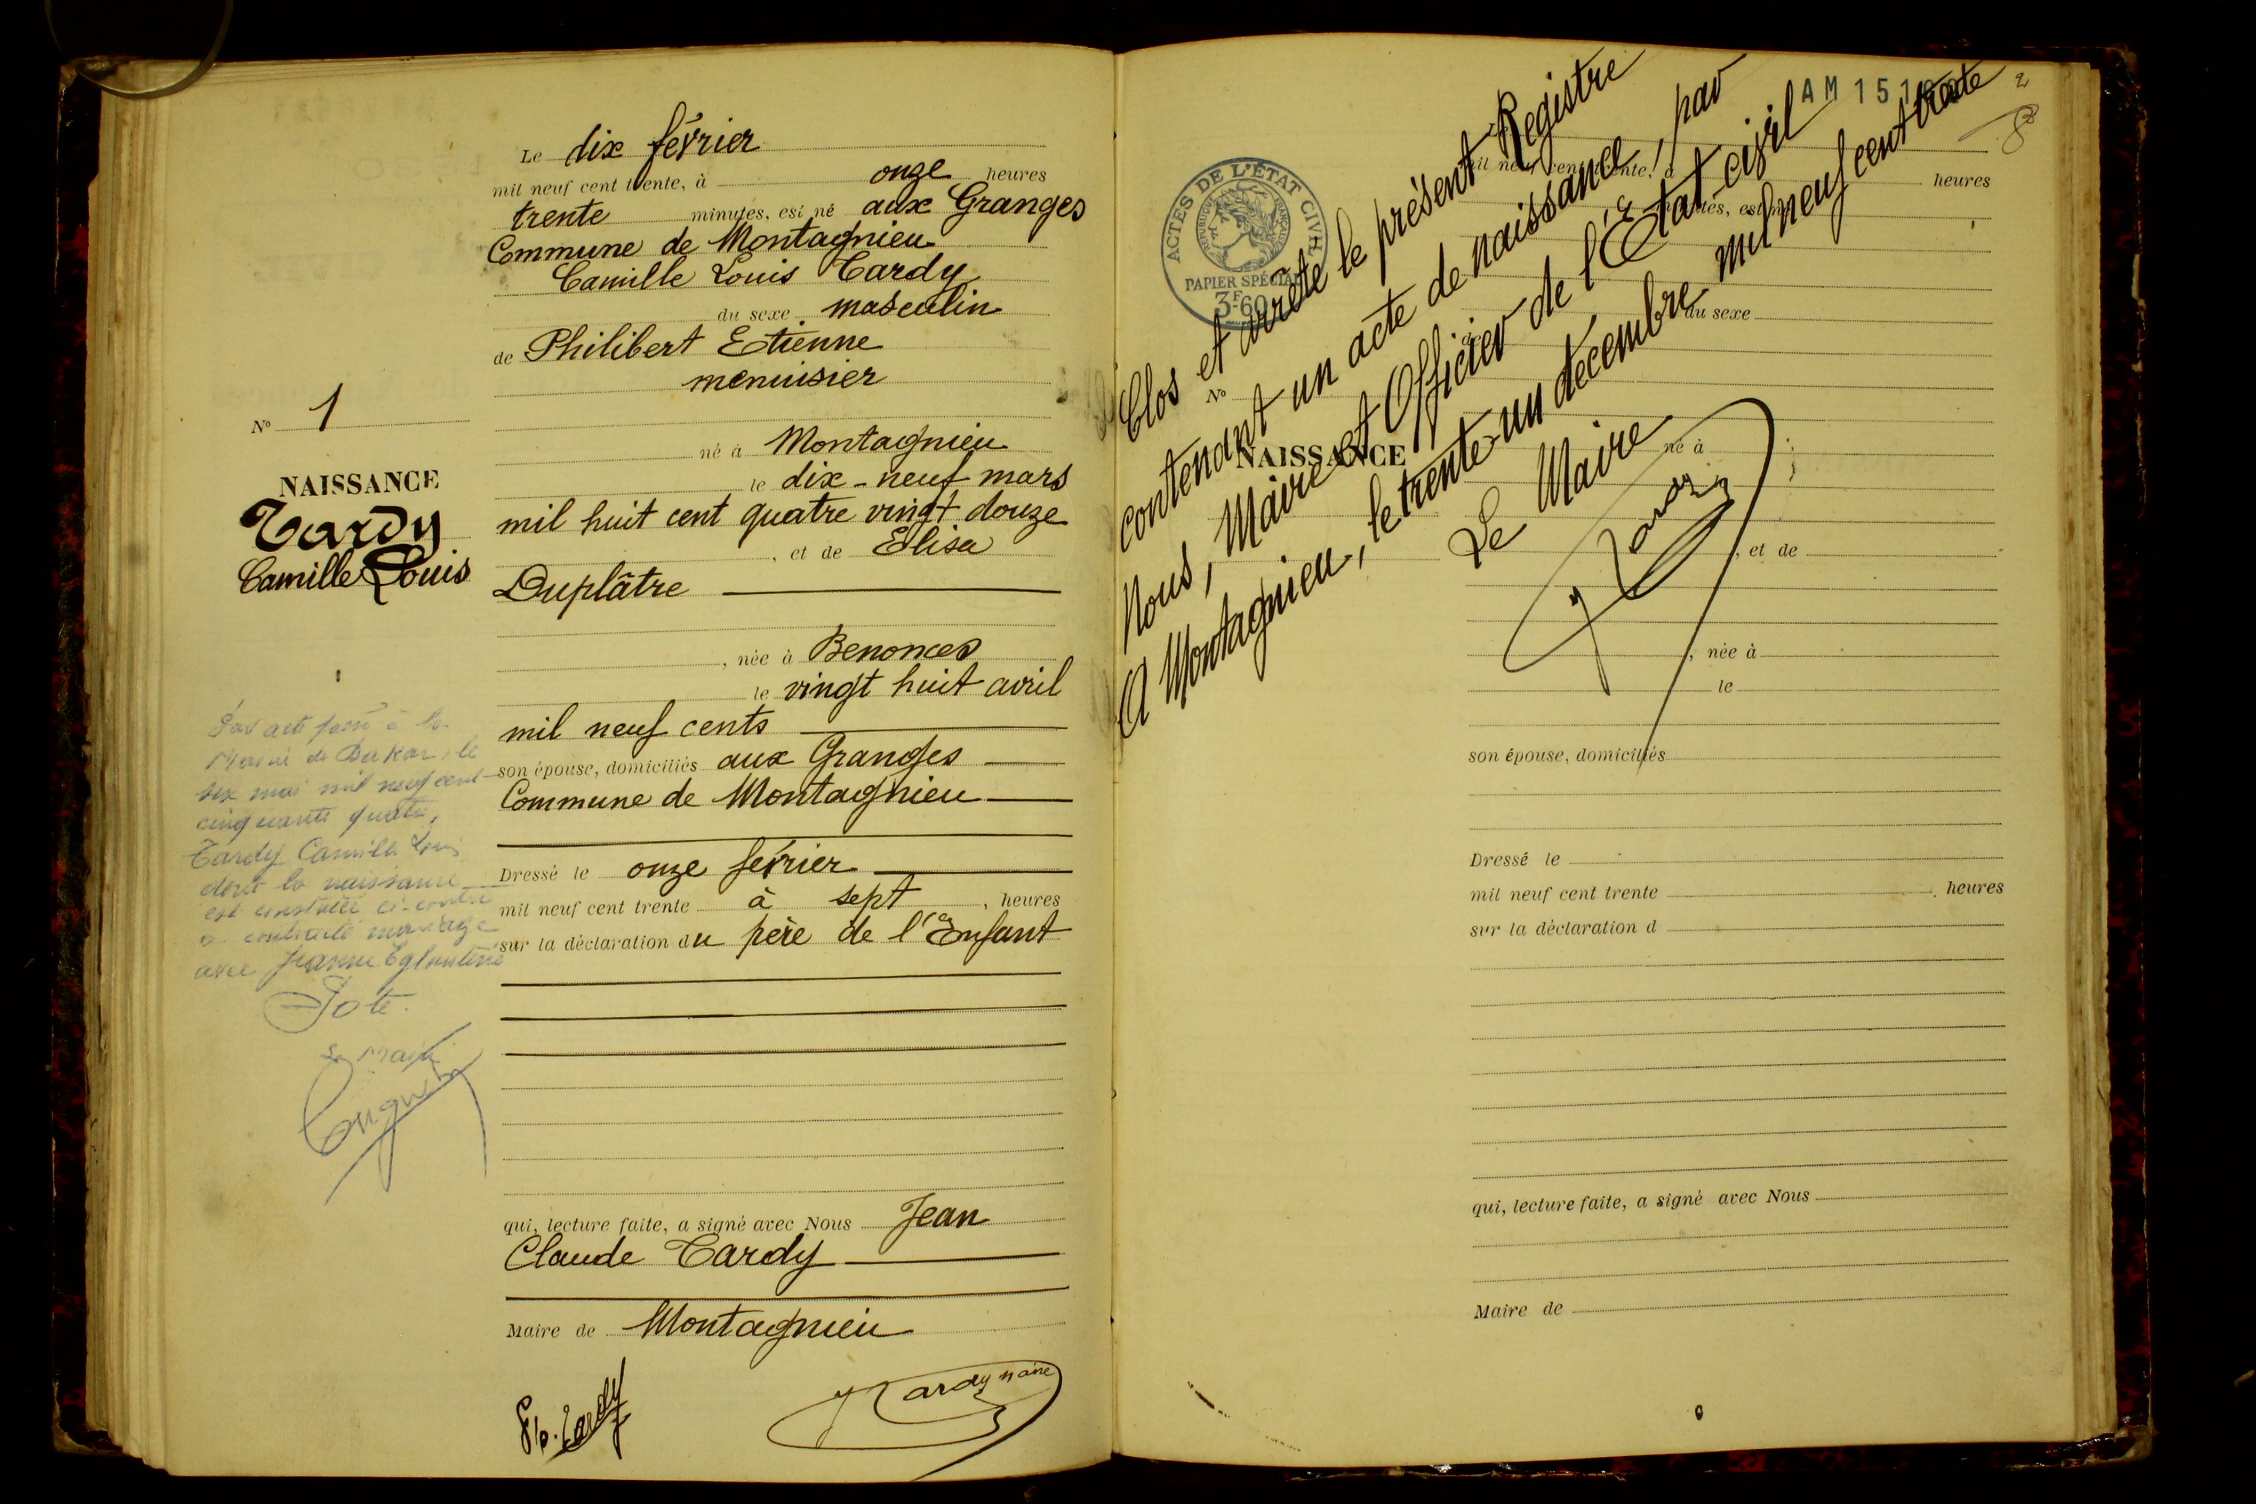 Le dix février
mil neuf cent trente, à onze heures
trente minutes, est né aux Granges
Commune de Montagnieu
Camille Louis Tardy
du sexe masculin
de Philibert Etienne
menuisier
né à Montagnieu
le dix-neuf mars
mil huit cent quatre vingt douze
, et de Elisa
Duplâtre
, née à Benonces
le vingt huit avril
mil neuf cents
son épouse, domiciliés aux Granges
Commune de Montagnieu
Dressé le onze février
mil neuf cent trente à sept , heures
sur la déclaration du père de l'Enfant
qui, lecture faite, a signé avec Nous Jean
Claude Tardy
Maire de Montagnieu
Ph. Tardy
J Tardy maire
No 1
NAISSANCE
Tardy
Camille Louis
Par acte passé à la
Mairie de Dakar, le
six mai mil neuf cent
cinquante quatre,
Tardy Camille Louis
dont la naissance
est constatée ci-contre
a contracté mariage
avec Jeanne Eglantine
Le Maire
AM 15
2
ACTES DE L'ÉTAT CIVIL
RÉPUBLIQUE FRANÇAISE
PAPIER SPÉCIAL
3F60
Clos et arrêté le présent Registre
contenant un acte de naissance, par
Nous, Maire et Officier de l'Etat-civil
A Montagnieu, le trente-un décembre mil neuf cent trente
Le Maire
J Tardy
mil neuf cent trente, à
heures
minutes, est né
du sexe
No
NAISSANCE
né à
, et de
, née à
le
son épouse, domiciliés
Dressé le
mil neuf cent trente , heures
sur la déclaration d
qui, lecture faite, a signé avec Nous
Maire de